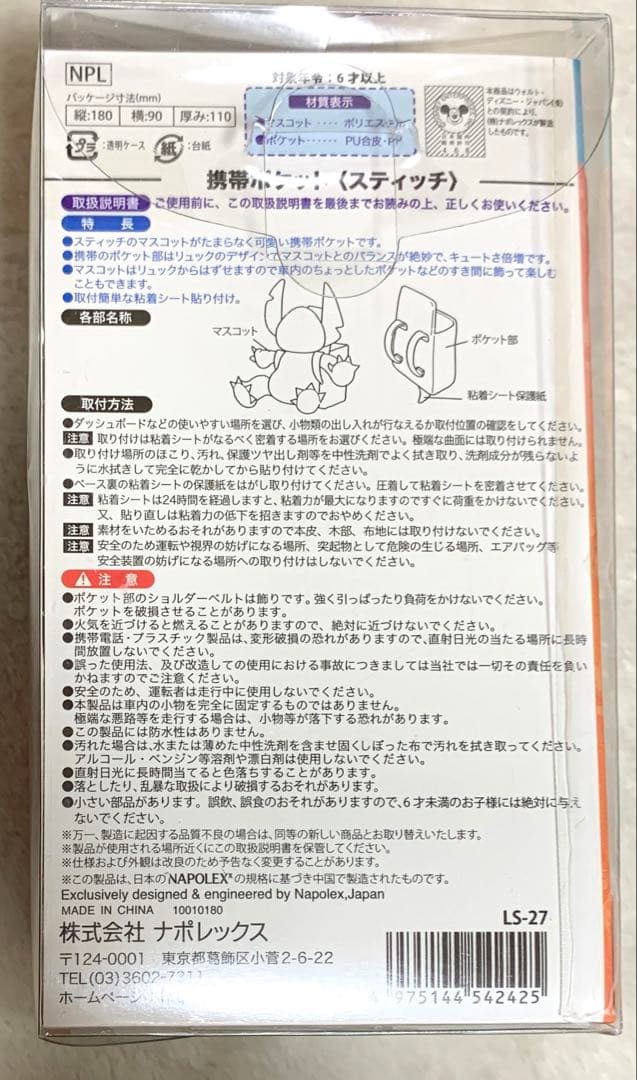 NPL
対象年令：6才以上
パッケージ寸法(mm)
縦:180 横:90 厚み:110
プラ :透明ケース 紙 :台紙
材質表示
●マスコット‥‥ポリエス
●ポケット‥‥‥PU合皮・PP
本商品はウォルト・
ディズニー・ジャパン(株)
との契約により、
(株)ナポレックスが製造
したものです。
携帯ポケット〈スティッチ〉
取扱説明書 ご使用前に、この取扱説明書を最後までお読みの上、正しくお使いください。
特 長
●スティッチのマスコットがたまらなく可愛い携帯ポケットです。
●携帯のポケット部はリュックのデザインでマスコットとのバランスが絶妙で、キュートさ倍増です。
●マスコットはリュックからはずせますので車内のちょっとしたポケットなどのすき間に飾って楽しむ
こともできます。
●取付簡単な粘着シート貼り付け。
各部名称
マスコット
ポケット部
粘着シート保護紙
取付方法
●ダッシュボードなどの使いやすい場所を選び、小物類の出し入れが行なえるか取付位置の確認をしてください。
注意 取り付けは粘着シートがなるべく密着する場所をお選びください。極端な曲面には取り付けられません。
●取り付け場所のほこり、汚れ、保護ツヤ出し剤等を中性洗剤でよく拭き取り、洗剤成分が残らないよ
うに水拭きして完全に乾かしてから貼り付けてください。
●ベース裏の粘着シートの保護紙をはがし取り付けてください。圧着して粘着シートを密着させてください。
注意 粘着シートは24時間を経過しますと、粘着力が最大になりますのですぐに荷重をかけないでください。
又、貼り直しは粘着力の低下を招きますのでおやめください。
注意 素材をいためるおそれがありますので本皮、木部、布地には取り付けないでください。
注意 安全のため運転や視界の妨げになる場所、突起物として危険の生じる場所、エアバッグ等
安全装置の妨げになる場所への取り付けはしないでください。
注 意
●ポケット部のショルダーベルトは飾りです。強く引っぱったり負荷をかけないでください。
ポケットを破損させることがあります。
●火気を近づけると燃えることがありますので、絶対に近づけないでください。
●携帯電話・プラスチック製品は、変形破損の恐れがありますので、直射日光の当たる場所に長時
間放置しないでください。
●誤った使用法、及び改造しての使用における事故につきましては当社では一切その責任を負い
かねますのでご注意ください。
●安全のため、運転者は走行中に使用しないでください。
●本製品は車内の小物を完全に固定するものではありません。
極端な悪路等を走行する場合は、小物等が落下する恐れがあります。
●この製品には防水性はありません。
●汚れた場合は、水または薄めた中性洗剤を含ませ固くしぼった布で汚れを拭き取ってください。
アルコール・ベンジン等溶剤や漂白剤は使用しないでください。
●直射日光に長時間当てると色落ちすることがあります。
●落としたり、乱暴な取扱により破損するおそれがあります。
●小さい部品があります。誤飲、誤食のおそれがありますので、6才未満のお子様には絶対に与え
ないでください。
※万一、製造に起因する品質不良の場合は、同等の新しい商品とお取り替えいたします。
※製品が使用される場所近くにこの取扱説明書を保管してください。
※仕様および外観は改良のため予告なく変更することがあります。
※この製品は、日本のNAPOLEXの規格に基づき中国で製造されたものです。
Exclusively designed & engineered by Napolex,Japan
MADE IN CHINA 10010180
LS-27
株式会社 ナポレックス
〒124-0001 東京都葛飾区小菅2-6-22
TEL(03)3602-7311
ホームページ
4 975144 542425